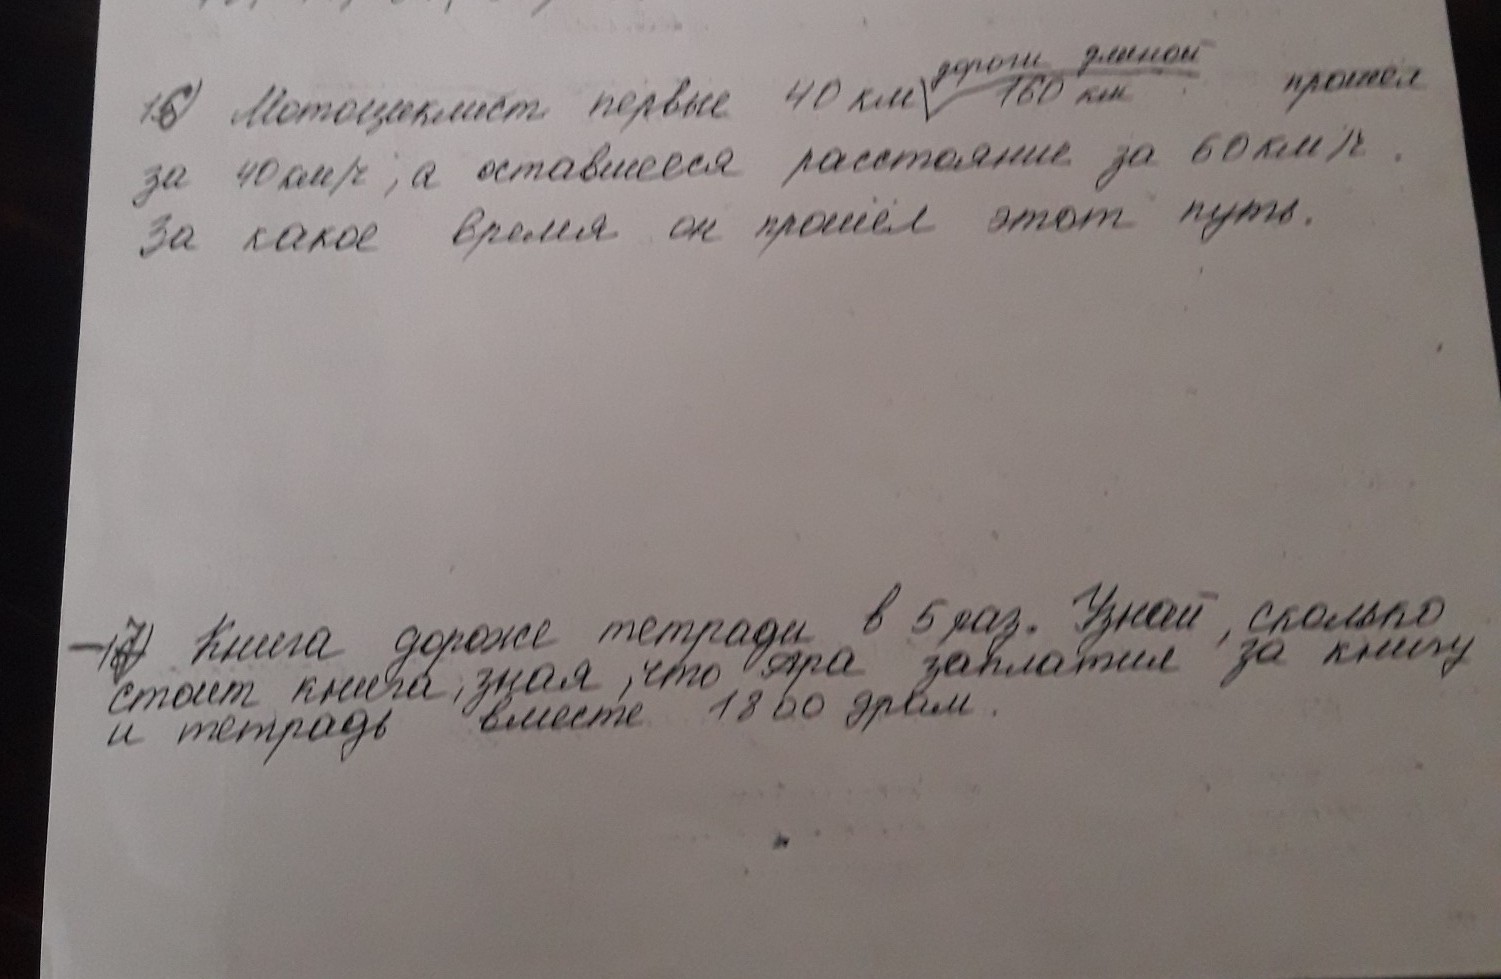 16) Мотоциклист первые 40 км дороги длиной 160 км прошёл
за 40 км/ч, а оставшееся расстояние за 60 км/ч.
За какое время он прошёл этот путь.
17) Книга дороже тетради в 5 раз. Узнай, сколько
стоит книга, зная, что Ара заплатил за книгу
и тетрадь вместе 1800 драм.